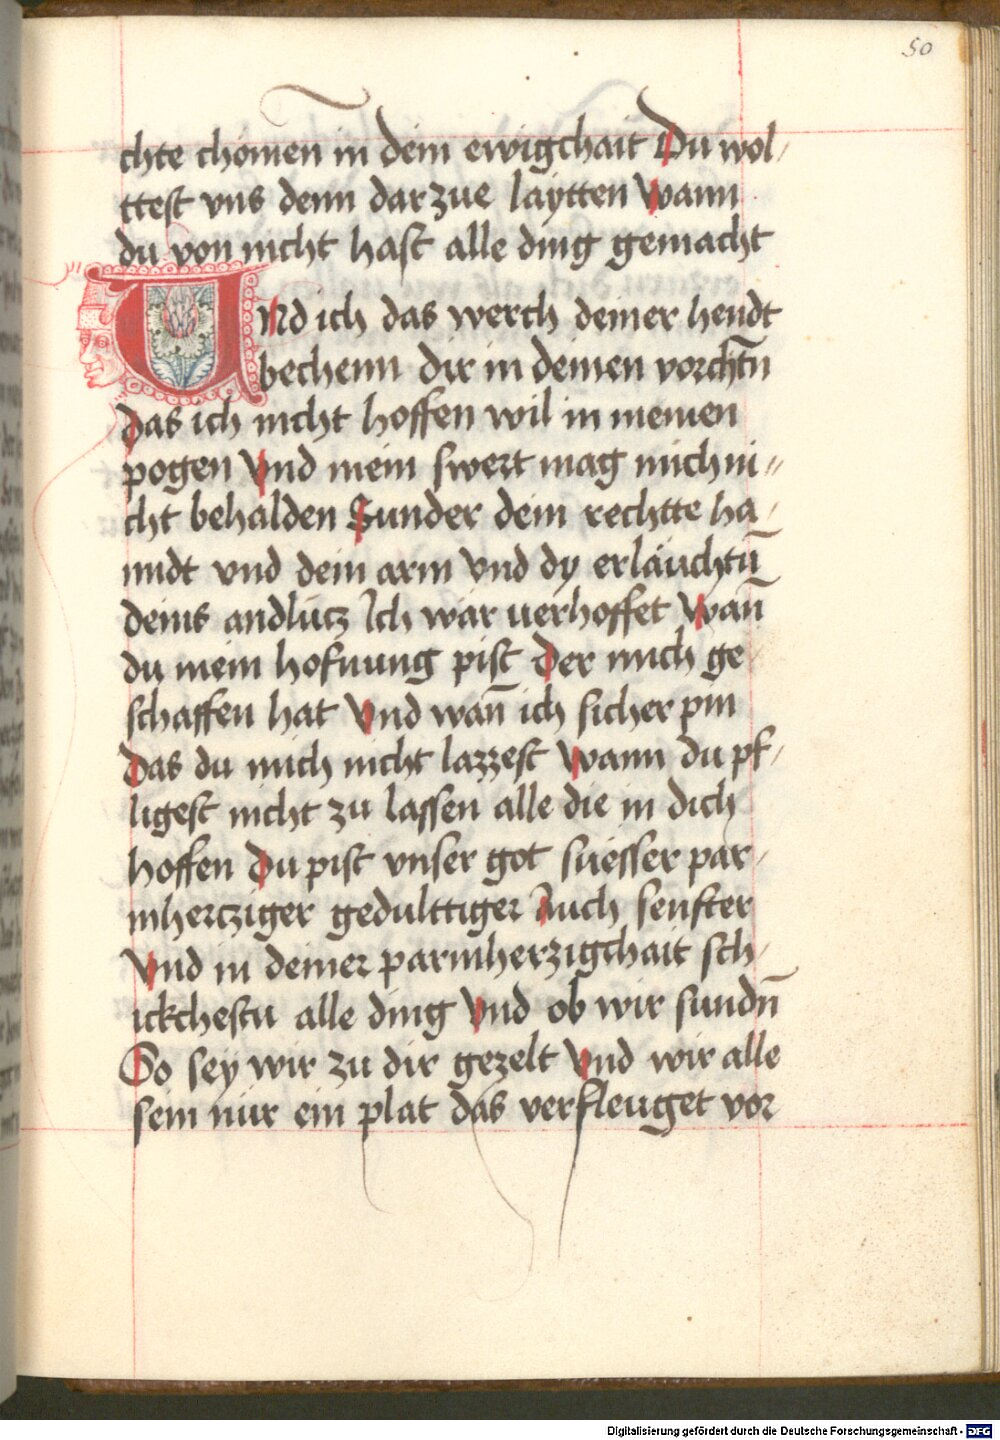 50
chte chomen in dein ewigchait Du wol-
ttest vns denn darzue laytten wann
du von nicht hast alle ding gemacht
Vnd ich das werch deiner hendt
bechenn dir in deinen vorchtn̄
das ich nicht hoffen wil in meinen
pogen Vnd mein swert mag mich ni-
cht behalden Sunder dein rechtte ha-
nndt vnd dein arm vnd dy erläuchtū
deins andlücz Ich wär uerhoffet wan̄
du mein hofnung pist Der mich ge
schaffen hat Vnd wan̄ ich sicher pin
Das du mich nicht lazzest wann du pf-
ligest nicht zu lassen alle die in dich
hoffen Du pist vnser got süesser par-
mhercziger gedulttiger Auch senfter
Vnd in deiner parmherzigchait sch-
ickchestu alle ding Vnd ob wir sundn̄
So sey wir zu dir gezelt Vnd wir alle
sein nür ein plat das verfleuget vor
Digitalisierung gefördert durch die Deutsche Forschungsgemeinschaft - DFG